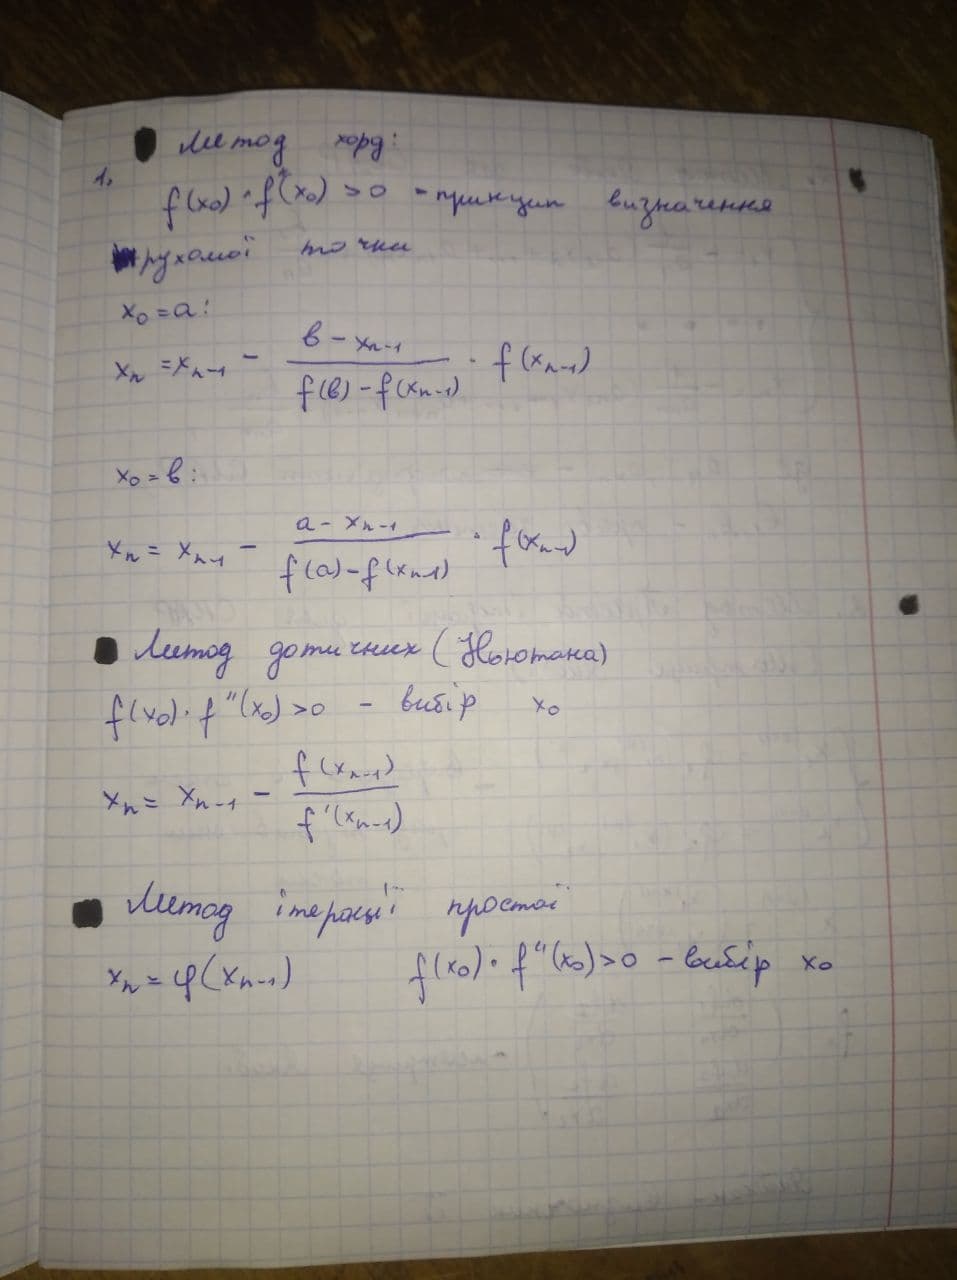 Метод хорд:
1.
f(x₀) · f"(x₀) > 0 - принцип визначення
рухомої точки
x₀ = a:
xₙ = xₙ₋₁ - (в - xₙ₋₁)/(f(в) - f(xₙ₋₁)) · f(xₙ₋₁)
x₀ = в:
xₙ = xₙ₋₁ - (a - xₙ₋₁)/(f(a) - f(xₙ₋₁)) · f(xₙ₋₁)
Метод дотичних (Ньютона)
f(x₀) · f"(x₀) > 0 - вибір x₀
xₙ = xₙ₋₁ - f(xₙ₋₁)/f'(xₙ₋₁)
Метод ітерації простої
xₙ = φ(xₙ₋₁) f(x₀) · f"(x₀) > 0 - вибір x₀